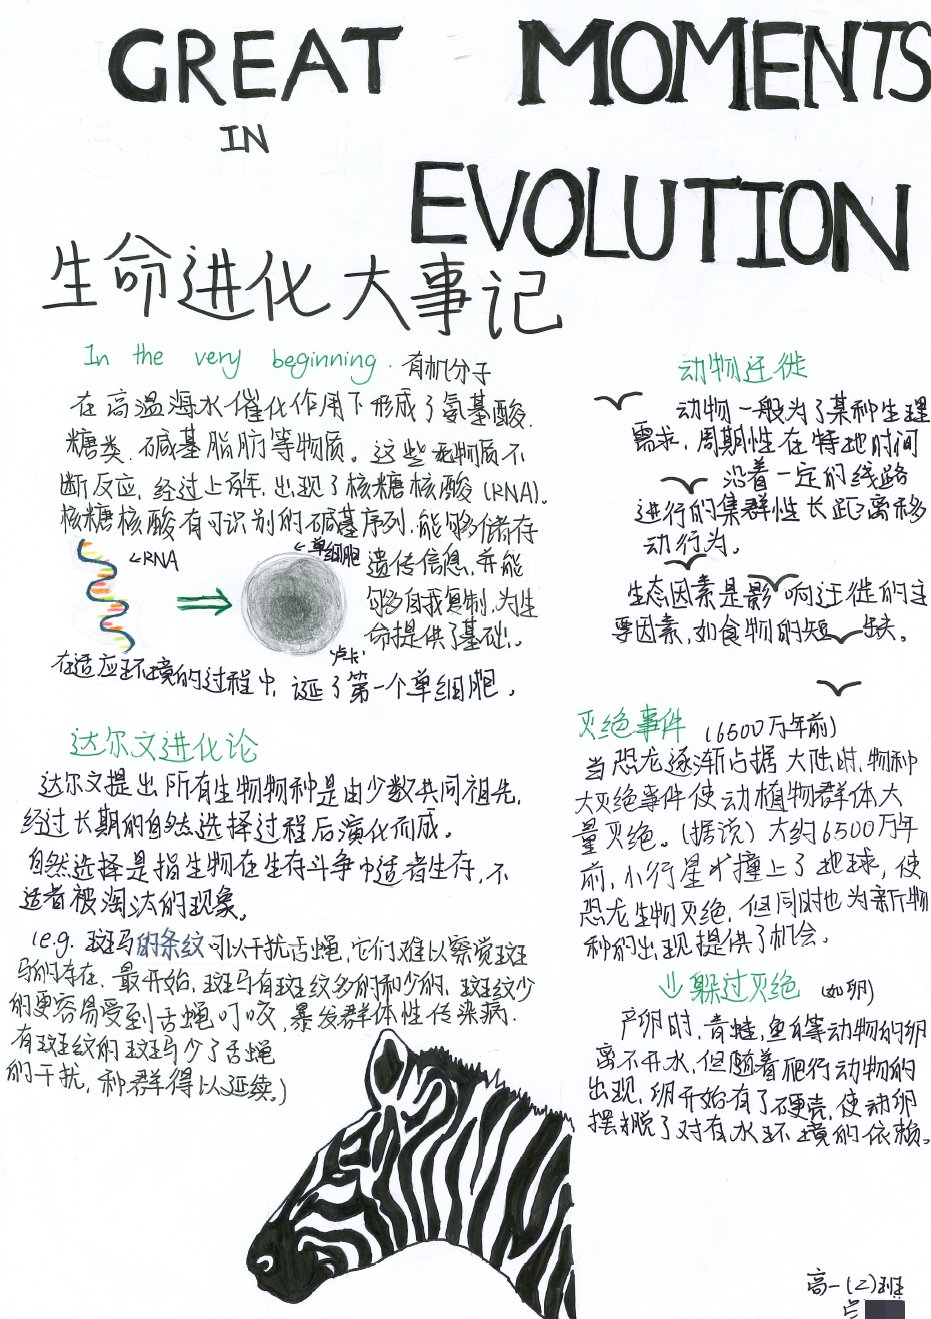 GREAT MOMENTS
IN
EVOLUTION
生命进化大事记
In the very beginning. 有机分子
在高温海水催化作用下形成了氨基酸.
糖类.碱基脂肪等物质。这些无物质不
断反应,经过上万年,出现了核糖核酸(RNA).
核糖核酸有可识别的碱基序列,能够储存
←RNA
←单细胞
遗传信息,并能
够自我复制,为生
命提供了基础。
"卢卡"
在适应环境的过程中,诞了第一个单细胞。
达尔文进化论
达尔文提出所有生物物种是由少数共同祖先,
经过长期的自然选择过程后演化而成。
自然选择是指生物在生存斗争中适者生存,不
适者被淘汰的现象。
(e.g. 斑马的条纹可以干扰舌蝇,它们难以察觉斑
马的存在.最开始,斑马有斑纹多的和少的,斑纹少
的更容易受到舌蝇叮咬,暴发群体性传染病.
有斑纹的斑马少了舌蝇
的干扰,种群得以延续。)
动物迁徙
动物一般为了某种生理
需求,周期性在特地时间
沿着一定的线路
进行的集群性长距离移
动行为。
生态因素是影响迁徙的主
要因素,如食物的短缺。
灭绝事件 (6500万年前)
当恐龙逐渐占据大陆时,物种
大灭绝事件使动植物群体大
量灭绝。(据说)大约6500万年
前,小行星撞上了地球,使
恐龙生物灭绝,但同时也为新物
种的出现提供了机会。
↓躲过灭绝 (如卵)
产卵时,青蛙,鱼等动物的卵
离不开水,但随着爬行动物的
出现,卵开始有了硬壳,使动卵
摆脱了对有水环境的依赖。
高一(2)班